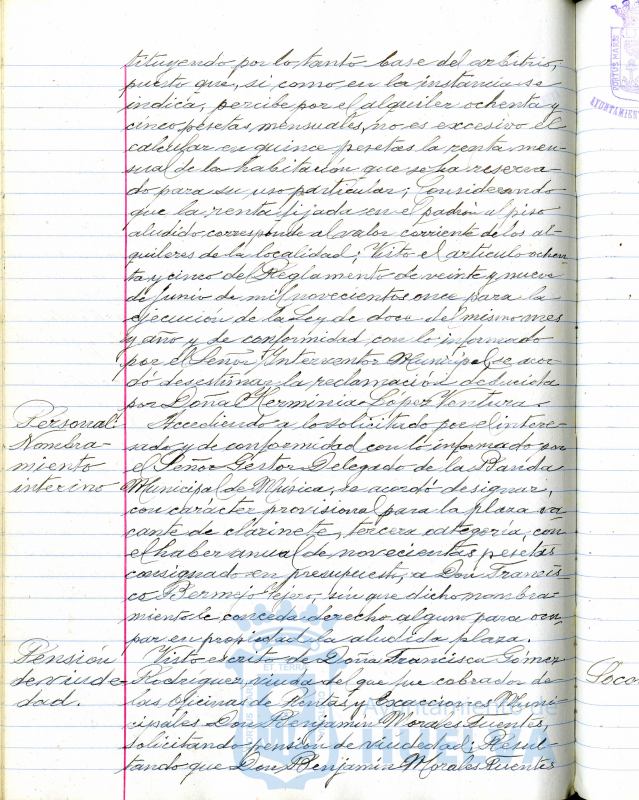 tituyendo por lo tanto base del arbitrio,
puesto que, si como en la instancia se
indica, percibe por el alquiler ochenta y
cinco pesetas mensuales, no es excesivo el
calcular en quince pesetas la renta men-
sual de la habitación que se ha reserva-
do para su uso particular; Considerando
que la renta fijada en el padrón al piso
aludido corresponde al valor corriente de los al-
quileres de la localidad; Visto el artículo ochen-
ta y cinco del Reglamento de veinte y nueve
de Junio de mil novecientos once para la
ejecución de la Ley de doce del mismo mes
y año y de conformidad con lo informado
por el Señor Interventor Municipal se acor-
dó desestimar la reclamación deducida
por Doña Herminia López Ventura.
Personal:
Nombra-
miento
interino
Accediendo a lo solicitado por el intere-
sado y de conformidad con lo informado por
el Señor Gestor Delegado de la Banda
Municipal de Música, se acordó designar,
con carácter provisional para la plaza va-
cante de clarinete, tercera categoría, con
el haber anual de novecientas pesetas
consignado en presupuesto, a Don Francis-
co Bermejo, sin que dicho nombra-
miento le conceda derecho alguno para ocu-
par en propiedad la aludida plaza.
Pensión
de viude-
dad.
Visto escrito de Doña Francisca Gómez
Rodríguez, viuda del que fue cobrador de
las Oficinas de Rentas y Exacciones Muni-
cipales Don Benjamín Morales Fuentes,
solicitando pensión de viudedad; Resul-
tando que Don Benjamín Morales Fuentes
Ayuntamiento de
HUELVA
Soco
PORTUS MARIS
AYUNTAMIEN